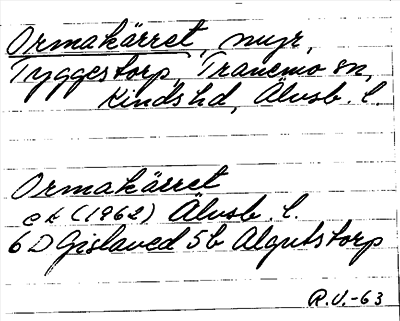 Ormakärret, myr,
Tyggestorp, Tranemo sn,
Kinds hd, Älvsb. l.
Ormakärret
ek (1962) Älvsb. l.
6 D Gislaved 5b Algutstorp
R.V.-63